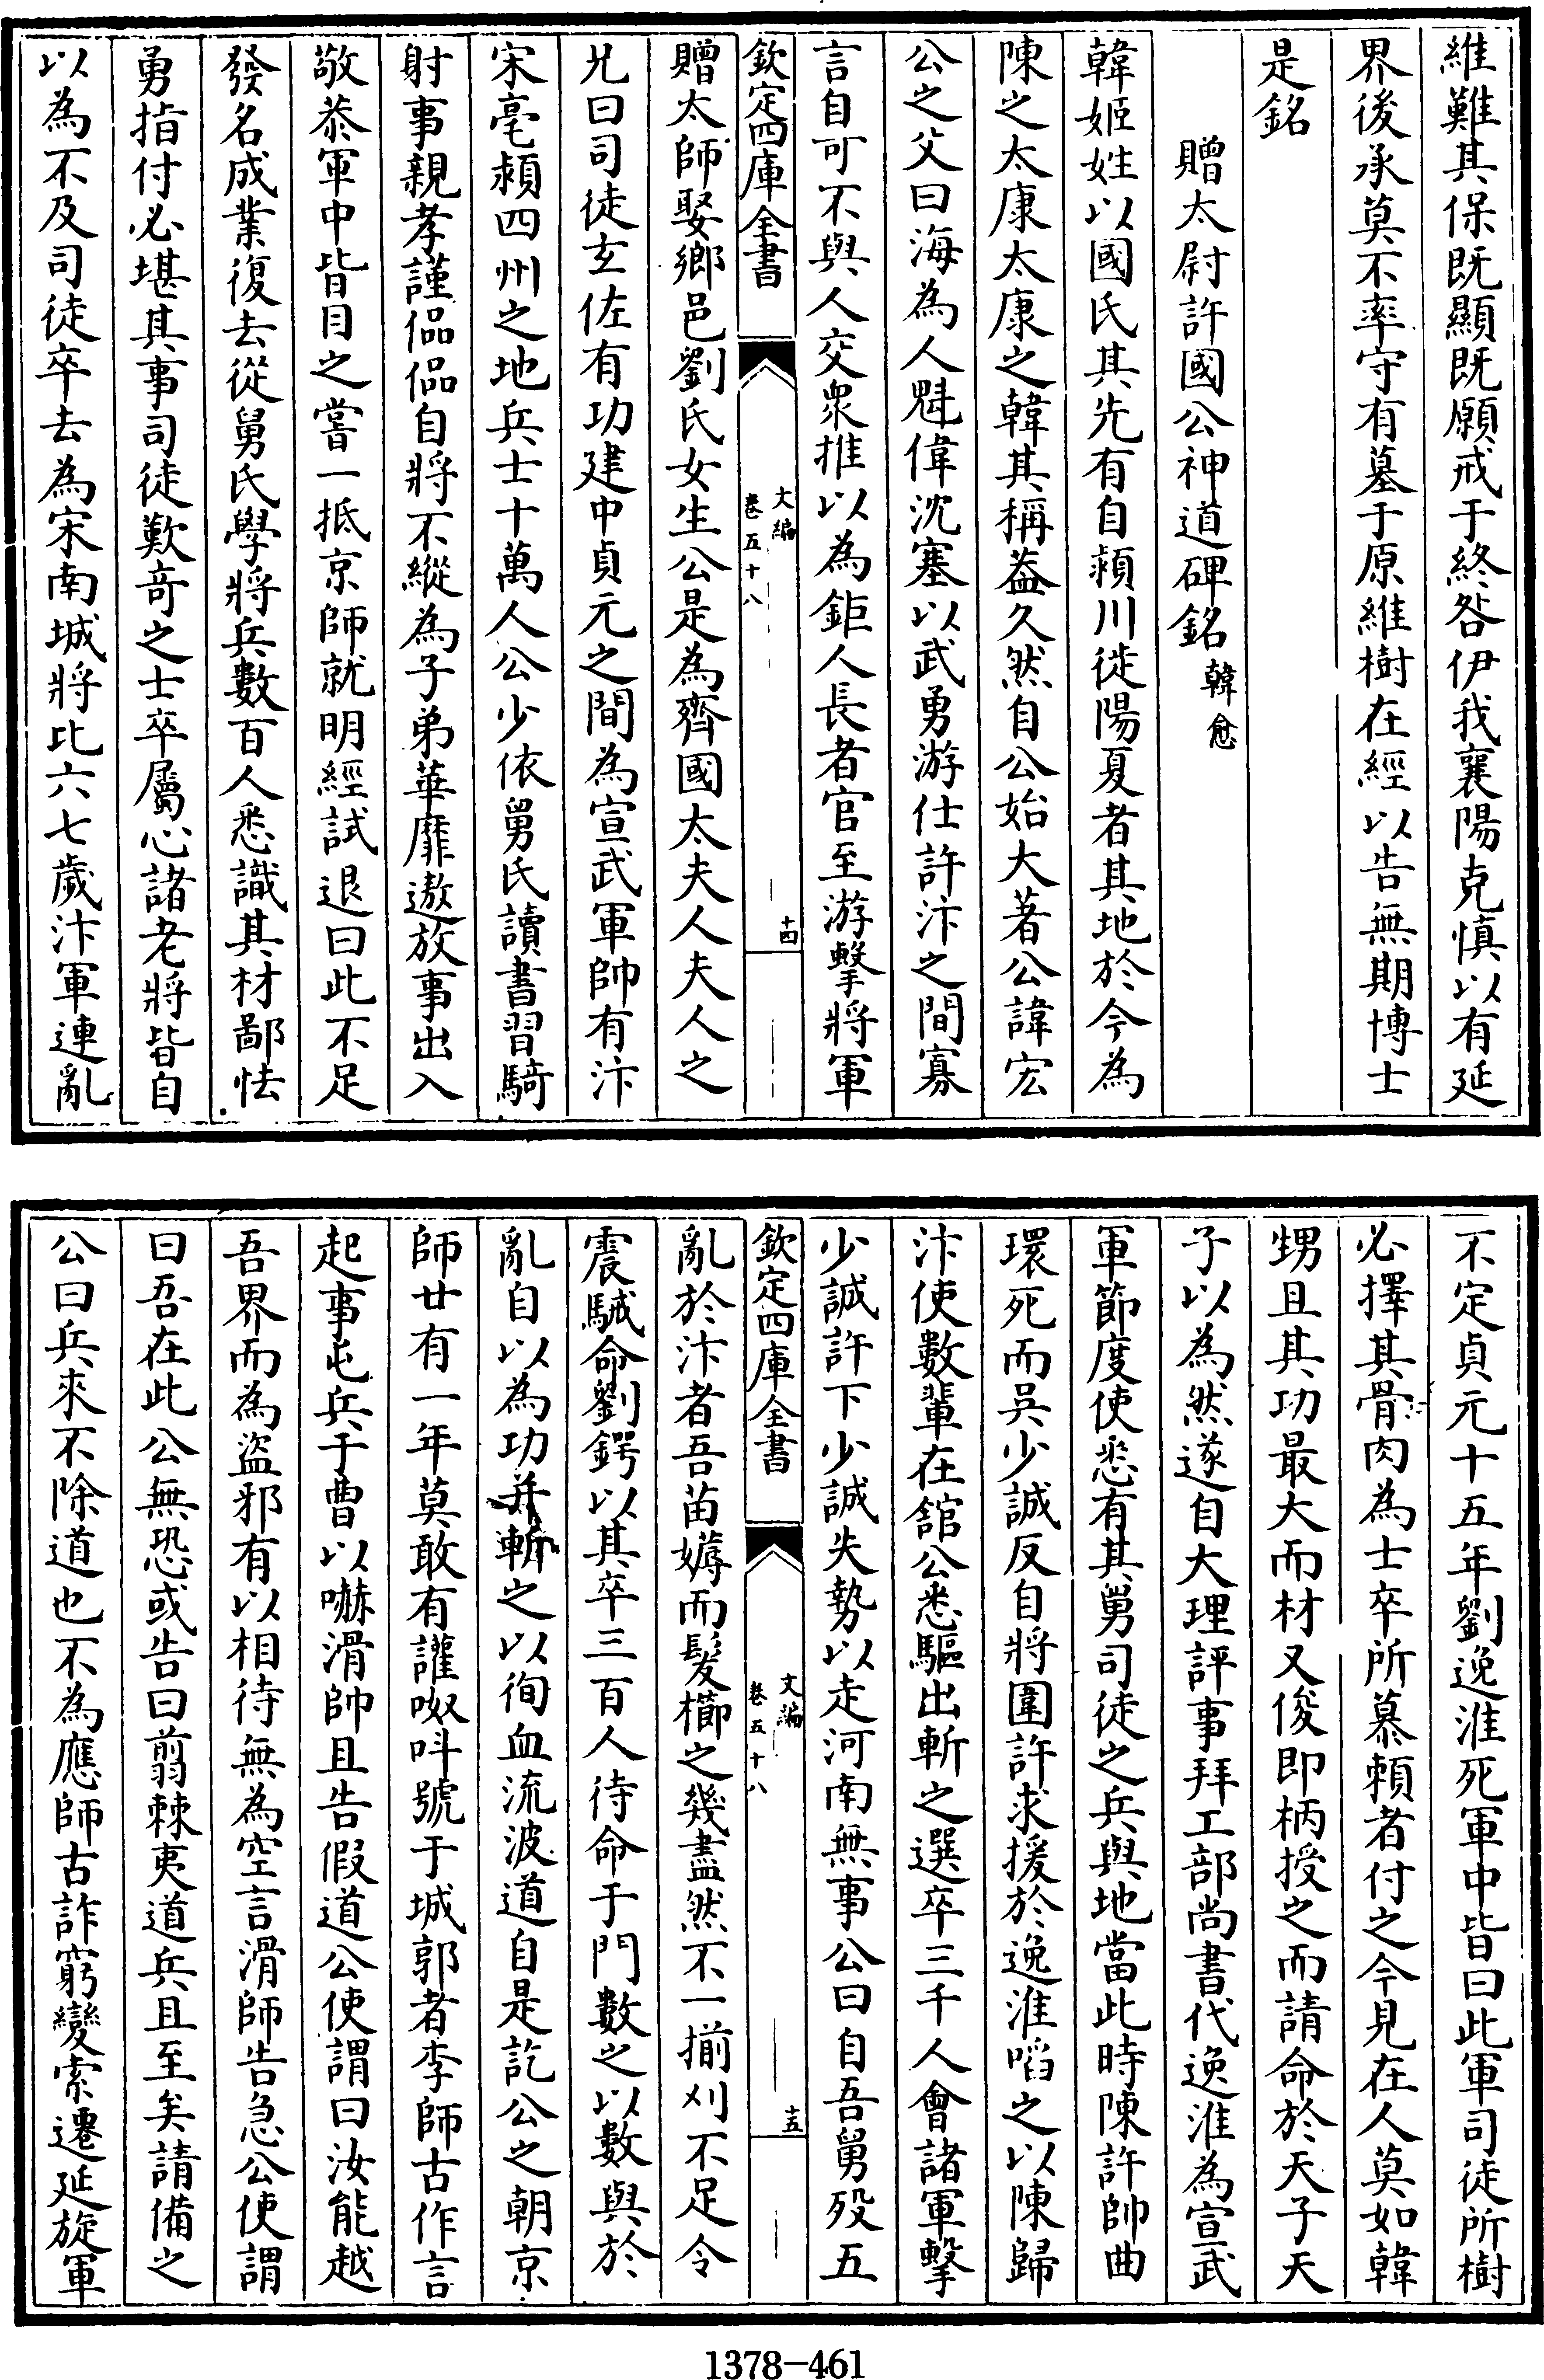 維難其保既顯既願戒于終咎伊我襄陽克慎以有延
界後承莫不率守有墓于原維樹在經以告無期博士
是銘
贈太尉許國公神道碑銘韓愈
韓姬姓以國氏其先有自潁川徙陽夏者其地於今為
陳之太康太康之韓其稱葢久然自公始大著公諱宏
公之父曰海為人魁偉沈塞以武勇游仕許汴之間寡
言自可不與人交衆推以為鉅人長者官至游擊將軍
欽定四庫全書
文編
卷五十八
十四
贈太師娶鄉邑劉氏女生公是為齊國太夫人夫人之
兄曰司徒玄佐有功建中貞元之間為宣武軍帥有汴
宋亳潁四州之地兵士十萬人公少依舅氏讀書習騎
射事親孝謹偘偘自將不縱為子弟華靡遨放事出入
敬恭軍中皆目之嘗一抵京師就明經試退曰此不足
發名成業復去從舅氏學將兵數百人悉識其材鄙怯
勇指付必堪其事司徒歎奇之士卒屬心諸老將皆自
以為不及司徒卒去為宋南城將比六七歲汴軍連亂
不定貞元十五年劉逸淮死軍中皆曰此軍司徒所樹
必擇其骨肉為士卒所慕賴者付之今見在人莫如韓
甥且其功最大而材又俊即柄授之而請命於天子天
子以為然遂自大理評事拜工部尚書代逸淮為宣武
軍節度使悉有其舅司徒之兵與地當此時陳許帥曲
環死而吳少誠反自將圍許求援於逸淮啗之以陳歸
汴使數輩在館公悉驅出斬之選卒三千人會諸軍擊
少誠許下少誠失勢以走河南無事公曰自吾舅歿五
欽定四庫全書
文編
卷五十八
十五
亂於汴者吾苗薅而髮櫛之幾盡然不一揃刈不足令
震駴命劉鍔以其卒三百人待命于門數之以數與於
亂自以為功并斬之以徇血流波道自是訖公之朝京
師廿有一年莫敢有讙呶叫號于城郭者李師古作言
起事屯兵于曹以嚇滑帥且告假道公使謂曰汝能越
吾界而為盜邪有以相待無為空言滑師告急公使謂
曰吾在此公無恐或告曰翦棘夷道兵且至矣請備之
公曰兵來不除道也不為應師古詐窮變索遷延旋軍
1378-461